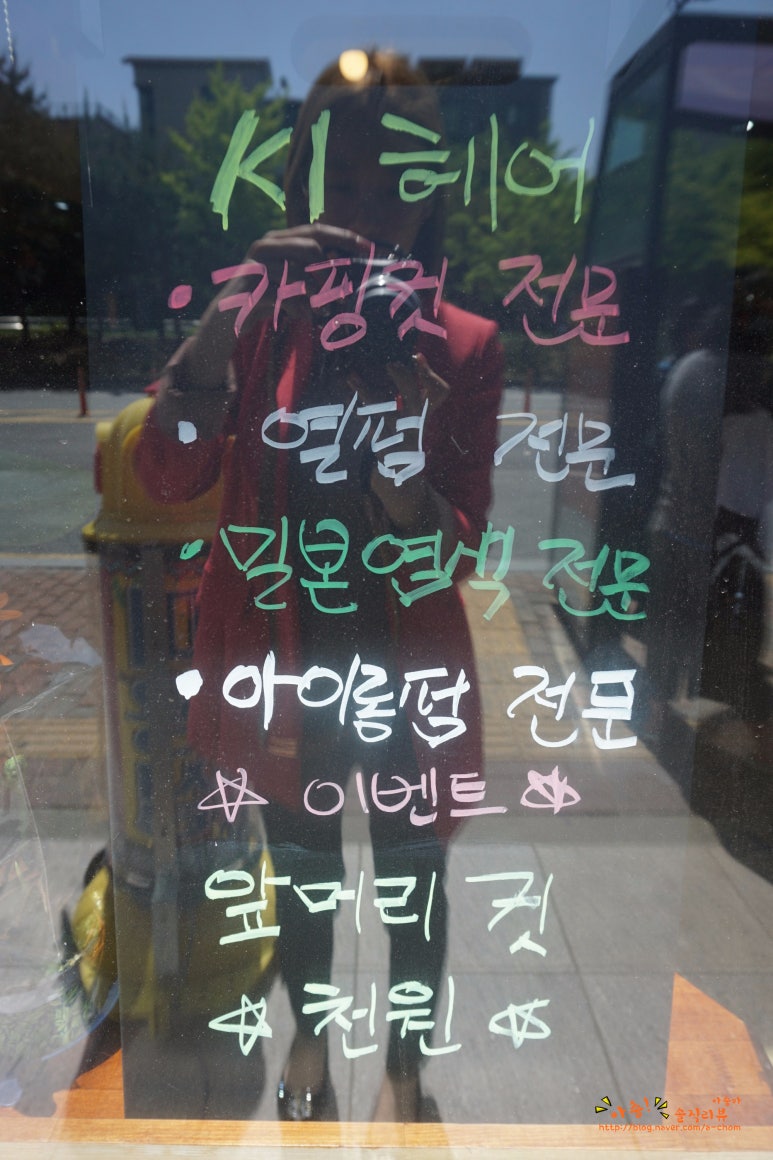 KI 헤어
• 카핑컷 전문
• 열펌 전문
• 밀본염색 전문
• 아이롱펌 전문
☆ 이벤트 ☆
앞머리 컷
☆ 천원 ☆
솔직리뷰
http://blog.naver.com/a-chom